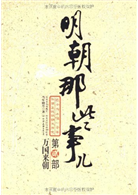 明朝那些事儿
第贰部
万国来朝